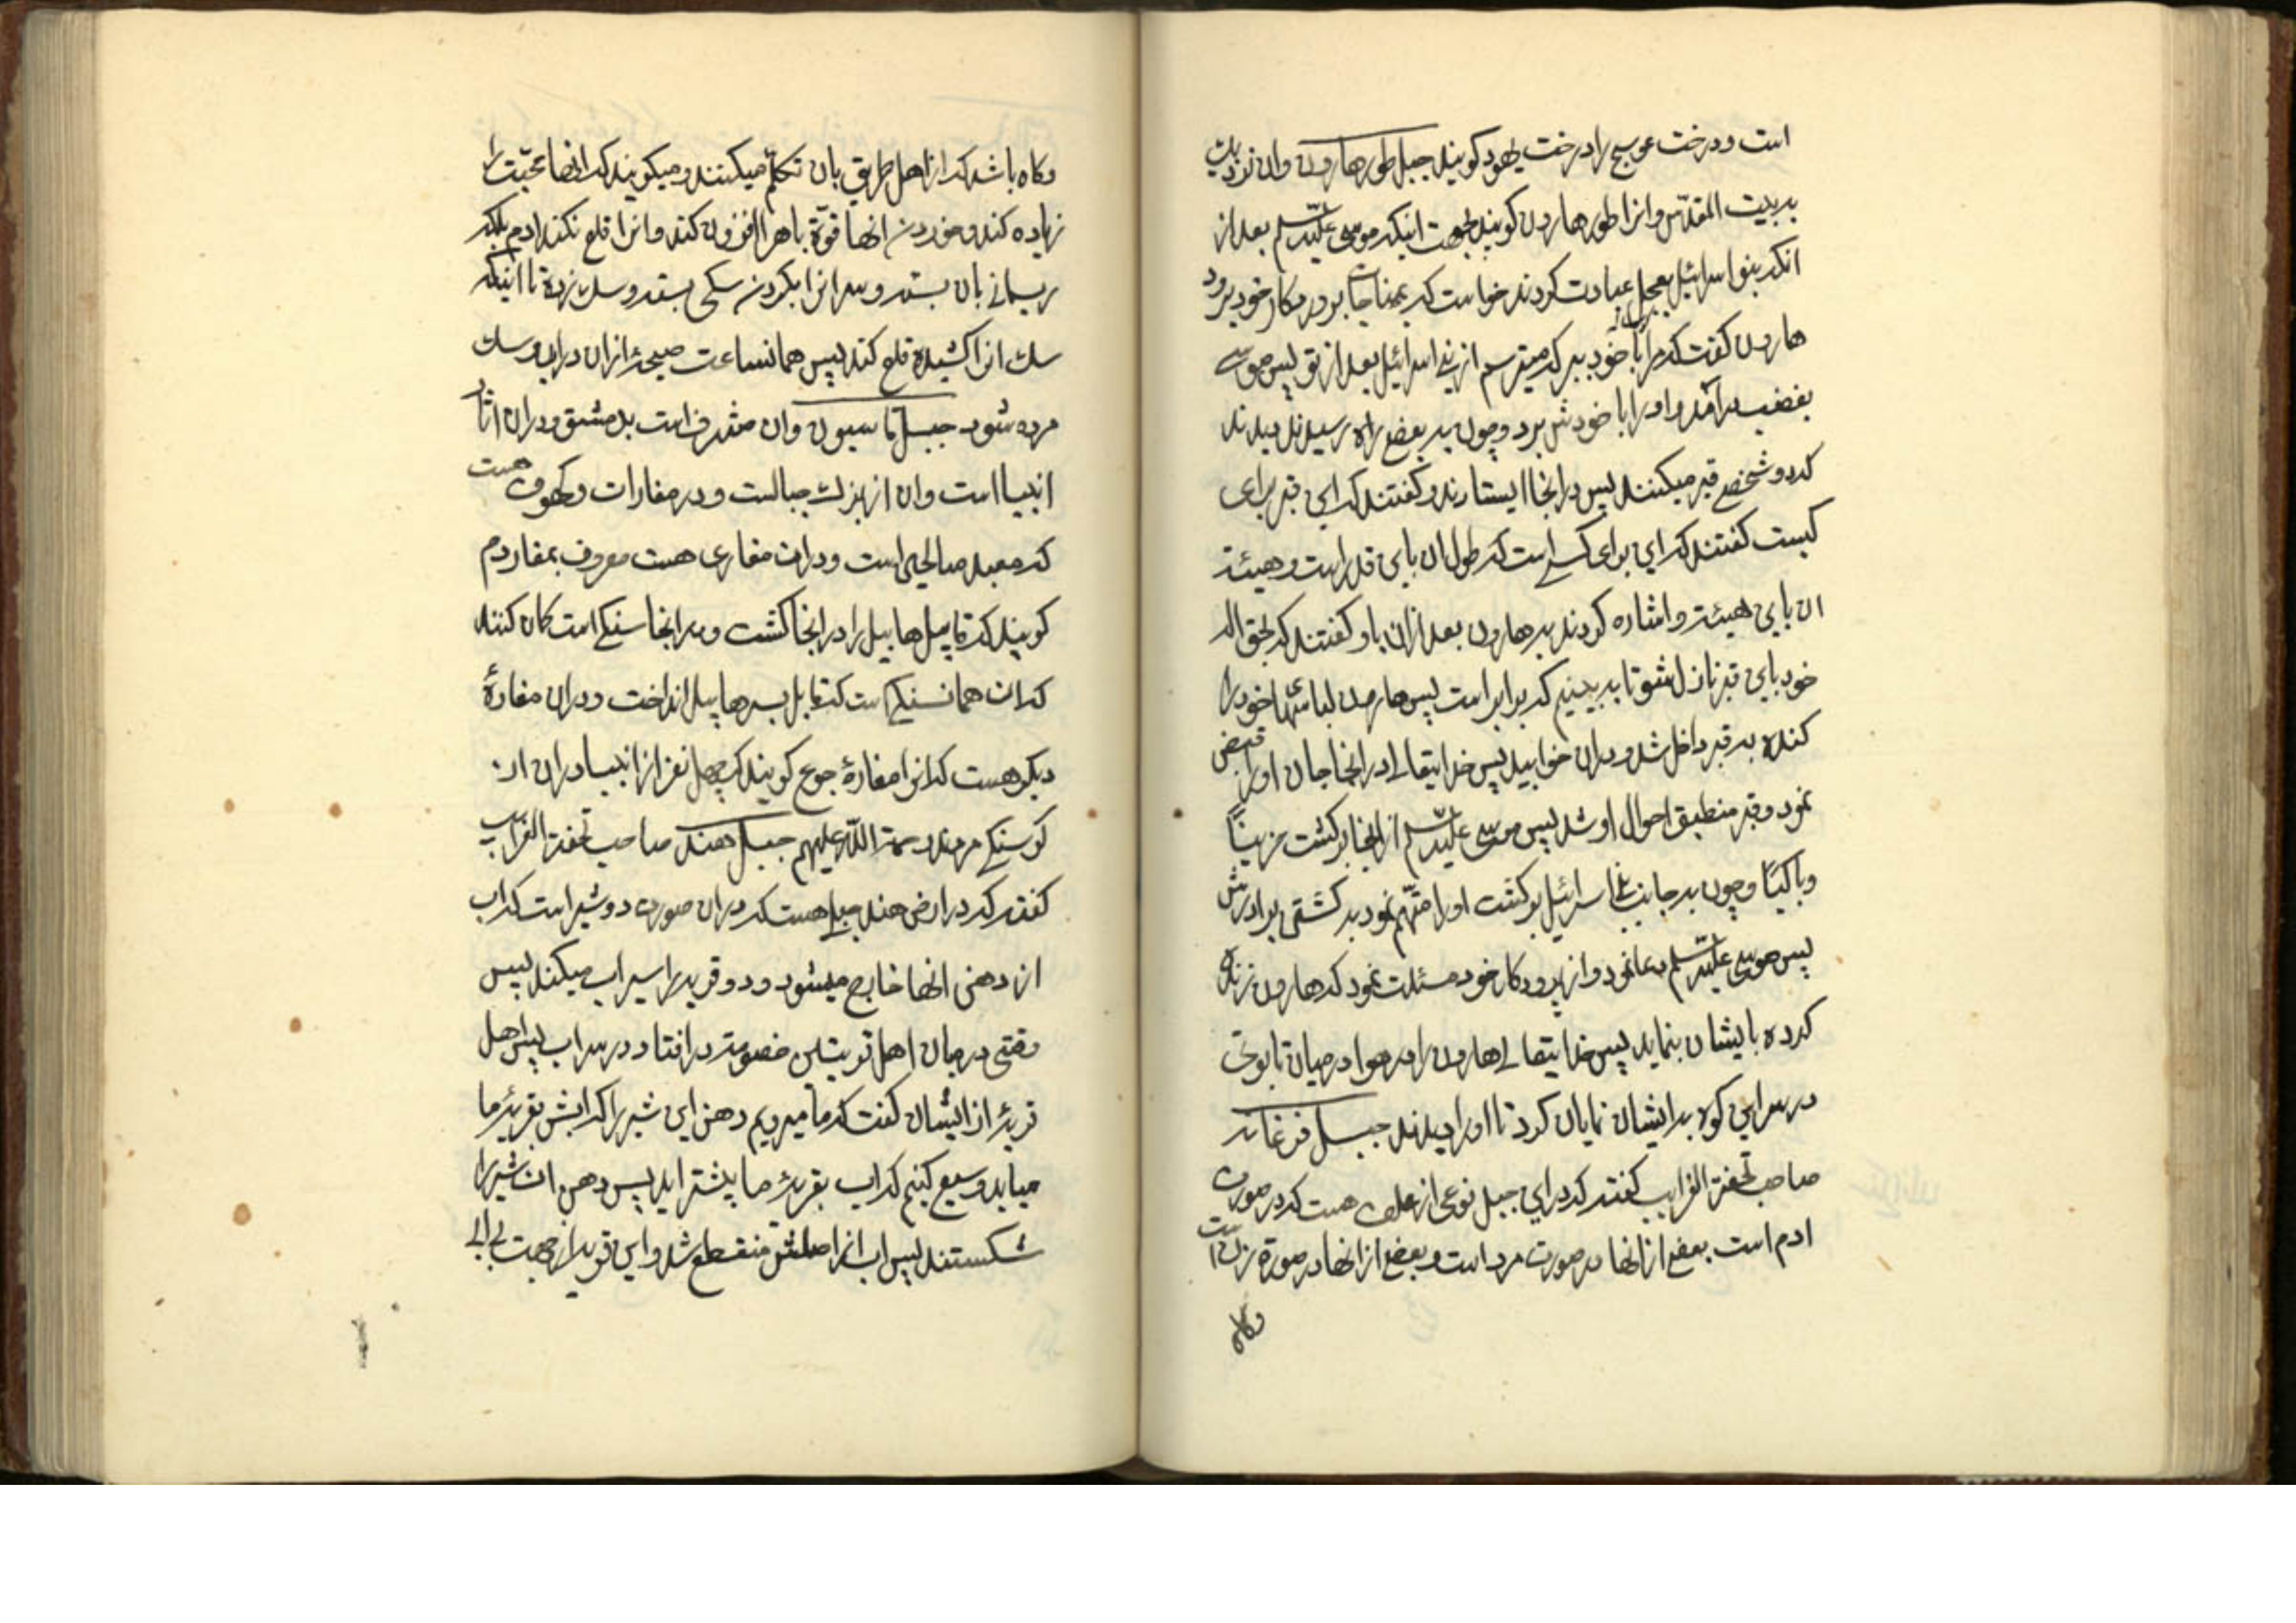 است ودرخت عوسج را درخت یهود کویند جبل طور هارون وان نزدیک
به بیت المقدس وانرا طور هارون کویند بجهت اینکه موسی علیه السلم بعد از
انکه بنو اسرائیل بعجل عبادت کردند خواست که بمناجات پروردکار خود برود
هارون کفت که مرا با خود ببر که میترسم از بنی اسرائیل بعد از تو پس موسی
بغضب برآمد واورا با خودش برد وچون به بعض راه رسیدند دیدند
که دو شخص قبر میکنند پس درانجا ایستادند وکفتند که این قبر برای
کیست کفتند که این برای کسی است که طول ان باین قدر است وهیئة
ان باین هیئته واشاره کردند به هارون بعد ازان باو کفتند که بحق اله
خود باین قبر نازل شو تا به بینیم که برابر است پس هارون لباسهای خود را
کنده به قبر داخل شد ودران خوابید پس خدایتعالی درانجا جان اورا قبض
نمود وقبر منطبق احوال او شد پس موسی علیه السلم از انجا برکشت حزینًا
وباکیًا وچون به جانب بنی اسرائیل برکشت اورا متّهم نمود به کشتن برادرش
پس موسی علیه السلم دعا نمود واز پروردکار خود مسئلت نمود که هارون زنده
کرده بایشان بنماید پس خدایتعالی هارون را در هوا در میان تابوتی
در سر این کوه به ایشان نمایان کرد تا اورا دیدند جبل فرغانه
صاحب تحفة الغرایب کفته که در این جبل نوعی از علف هست که در صورت
ادم است بعض از انها در صورت مرد است وبعض از انها در صورة زن است
وکاه
وکاه باشد که از اهل طریق بان تکلّم میکنند ومیکویند که انها محبّت را
زیاده کند وخوردن انها قوّة باه را افزون کند وانرا قلع نکند ادم بلکه
ریسمانی بان بسته وسر انرا بکردن سکی بسته وسک زده تا اینکه
سک انرا کشیده قلع کند پس همانساعت صیحهٔ ازان دراید وسک
مرده شود جبل قاسیون وان مشرف است بدمشق ودران اثار
انبیا است وان از بزرک جبالست ودر مغارات وکهوف هست
که معبد صالحین است ودران مغاری هست معروف بمغار دم
کویند که قابیل هابیل را درانجا کشت ودر انجا سنکی است کمان کنند
که ان همان سنکی است که قابل بسر هابیل انداخت ودران مغارهٔ
دیکر هست که انرا مغارهٔ جوع کویند که چهل نفر از انبیا دران از
کرسنکی مردند رحمة الله علیهم جبل هند صاحب تحفة الغرایب
کفته که در ارض هند جبلی هست که دران صورت دو شیر است که اب
از دهن انها خارج میشود ودو قریه را سیراب میکند پس
وقتی در میان اهل قریتین خصومت در افتاد در سر اب پس اهل
قریهٔ از ایشان کفت که ما میرویم دهن این شیر را که ابش بقریهٔ ما
میاید وسیع کنیم که اب بقریهٔ ما بیشتر اید پس دهن ان شیر را
شکستند پس اب انرا اصلش منقطع شد واین قریه از جهت بی ابی